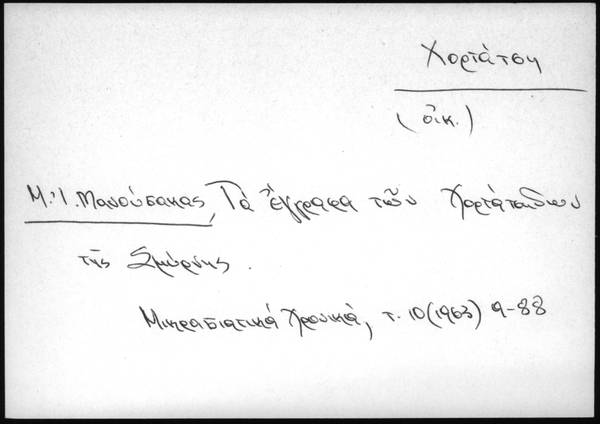 Χορτάτση
(οἰκ.)
Μ. Ἰ. Μανούσακας, Τὰ ἔγγραφα τῶν Χορτάτσηδων
τῆς Σμύρνης.
Μικρασιατικά Χρονικά, τ. 10 (1963) 9-88